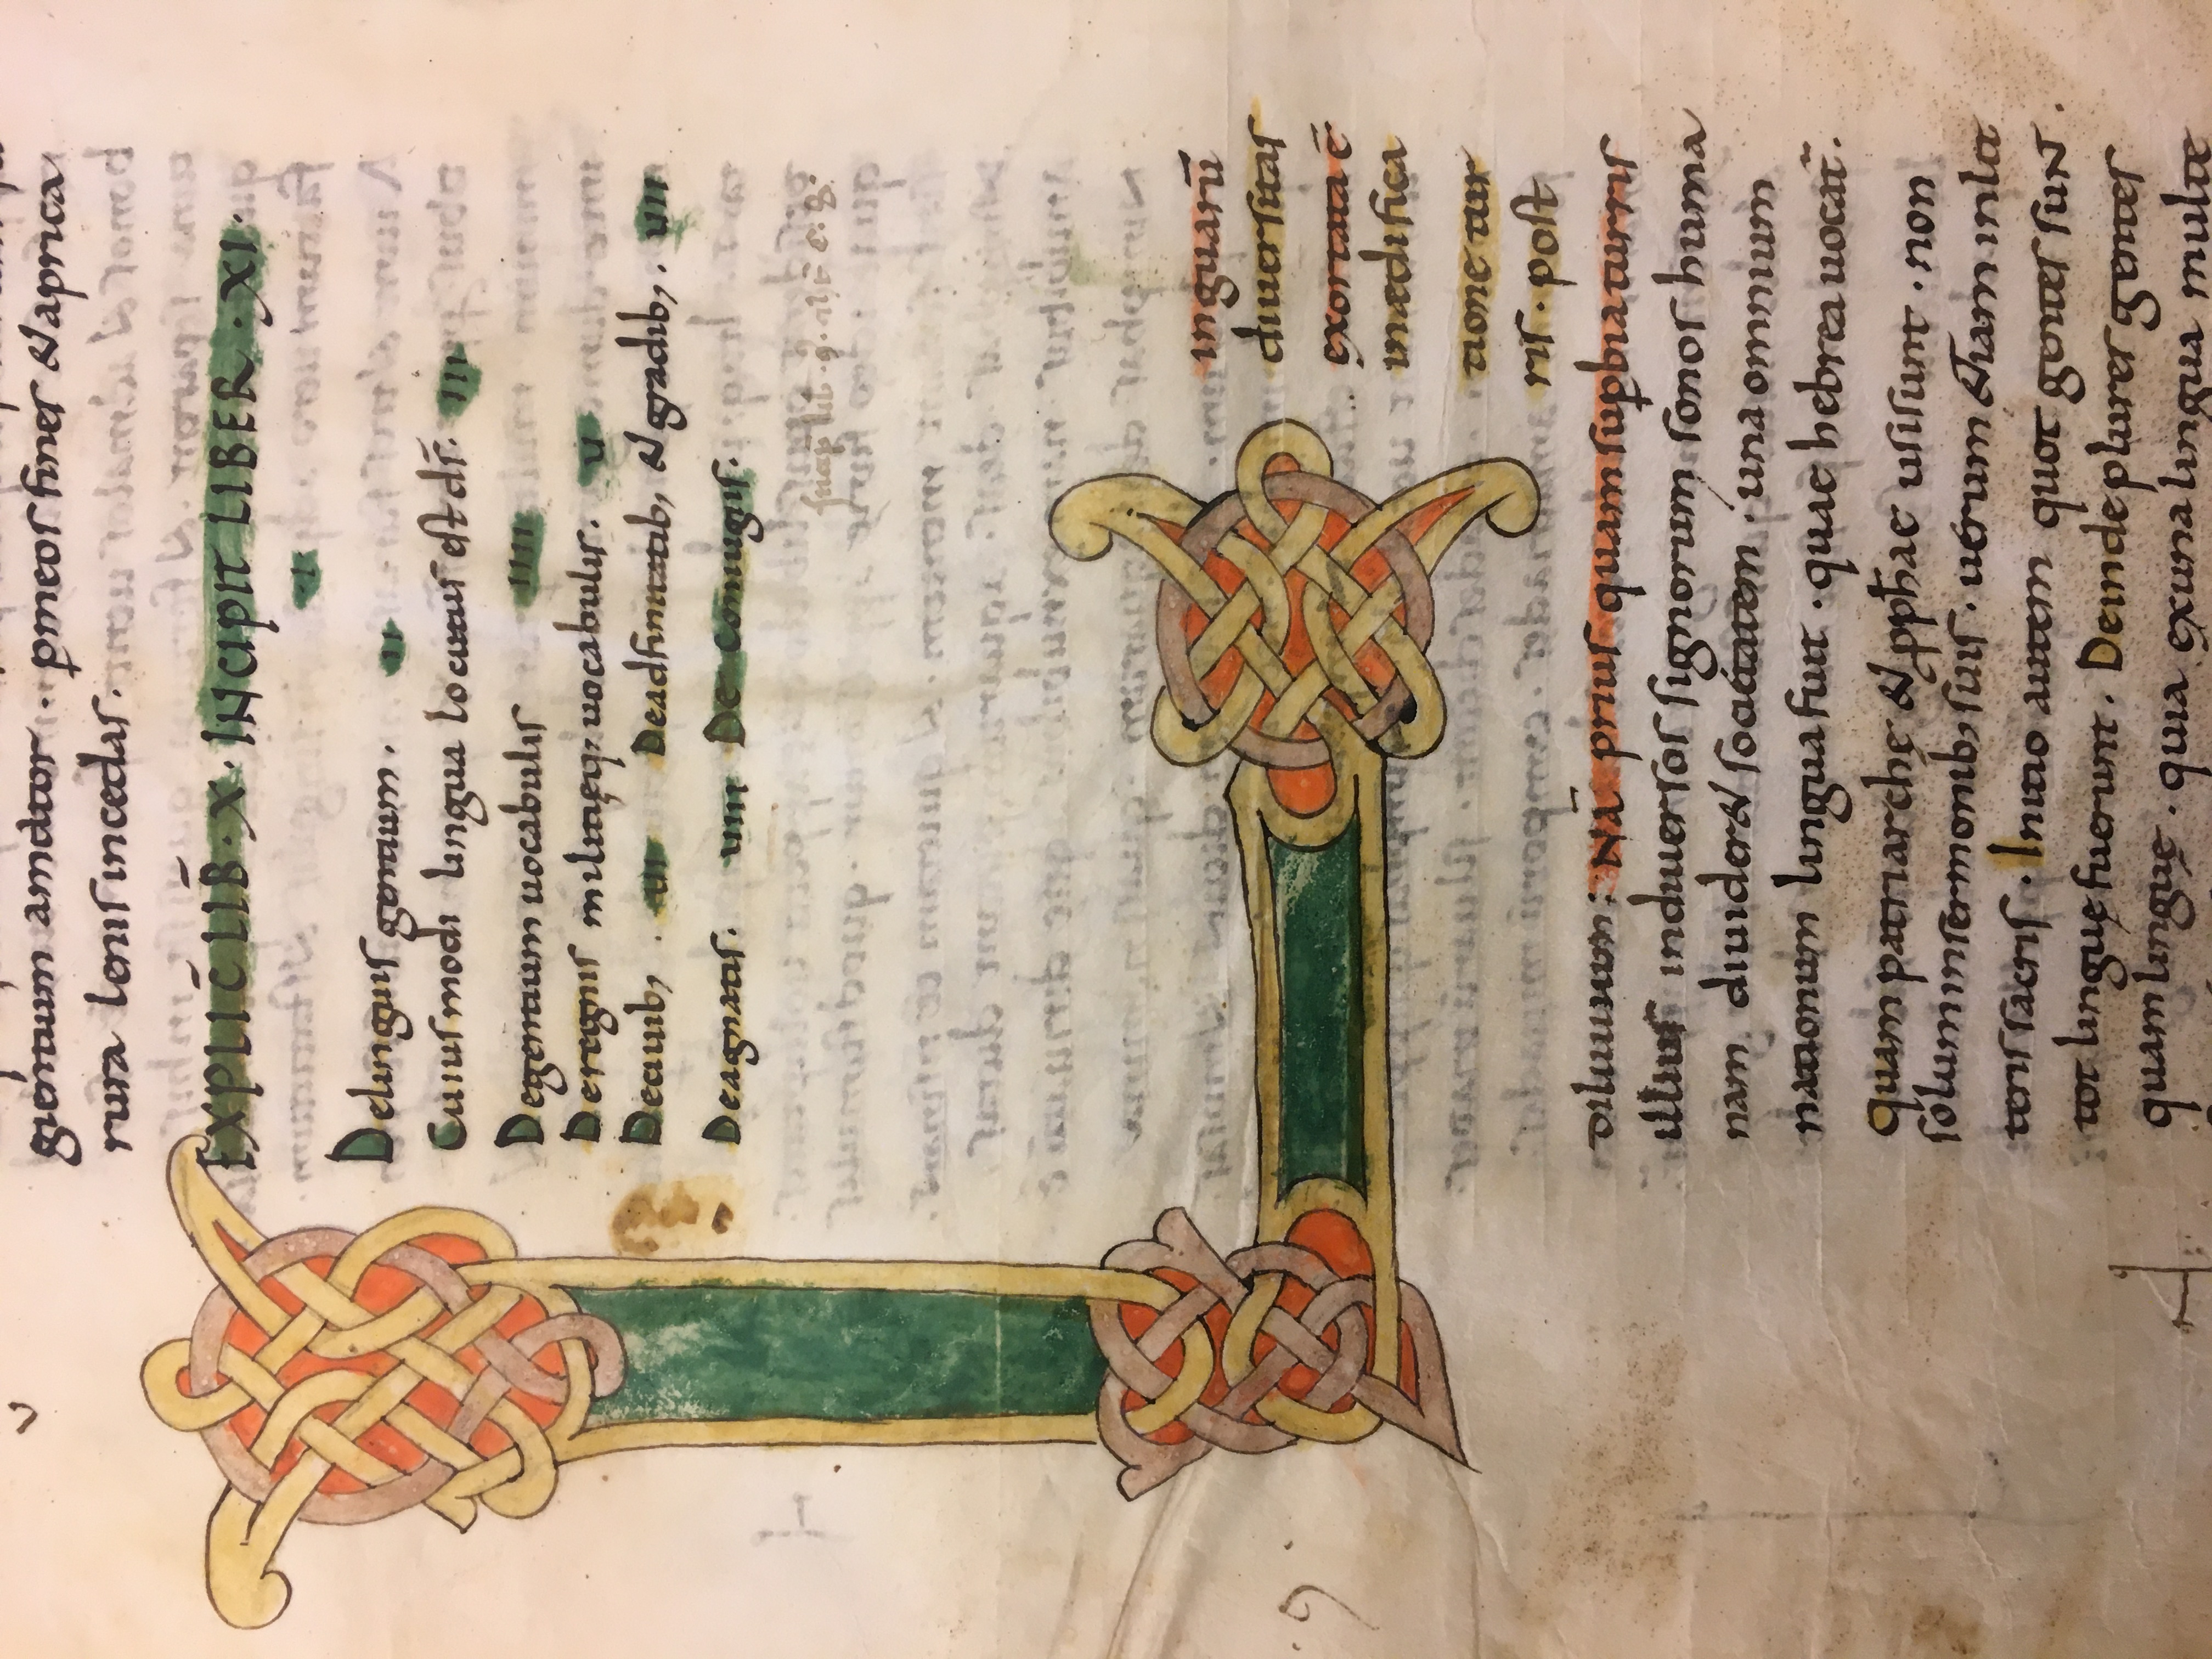 gientium amator. ꝑ meos fines & aprica
rura lenis incedas.
EXPLIC̄ LIB̄. X. INCIPIT LIBER. XI.
De linguis gentium. I
Cuiusmodi lingua locutus est ds̄. II
De gentium uocabulis III
De regnis militięq; uocabulis. V
De ciuib; VI De adfinitatib; & gradib; VII
De agnatis. VIII De coniugiis.
inguarū
diuersitas
exorta ē
in ædifica
tione tur
ris. post
diluuium. Nā prius quam suꝑbia turris
illius in diuersos signorum sonos huma
nam diuideret societatem. una omnium
nationum lingua fuit. quae hebrea uocat̄.
Quam patriarchę & ꝓphae usi sunt. non
solum in sermonib; suis. uerum & iam in litt
teris sacris. Initio autem quot gentes sunt
tot linguę fuerunt. Deinde plures gentes
quam linguę. quia ex una lingua multe